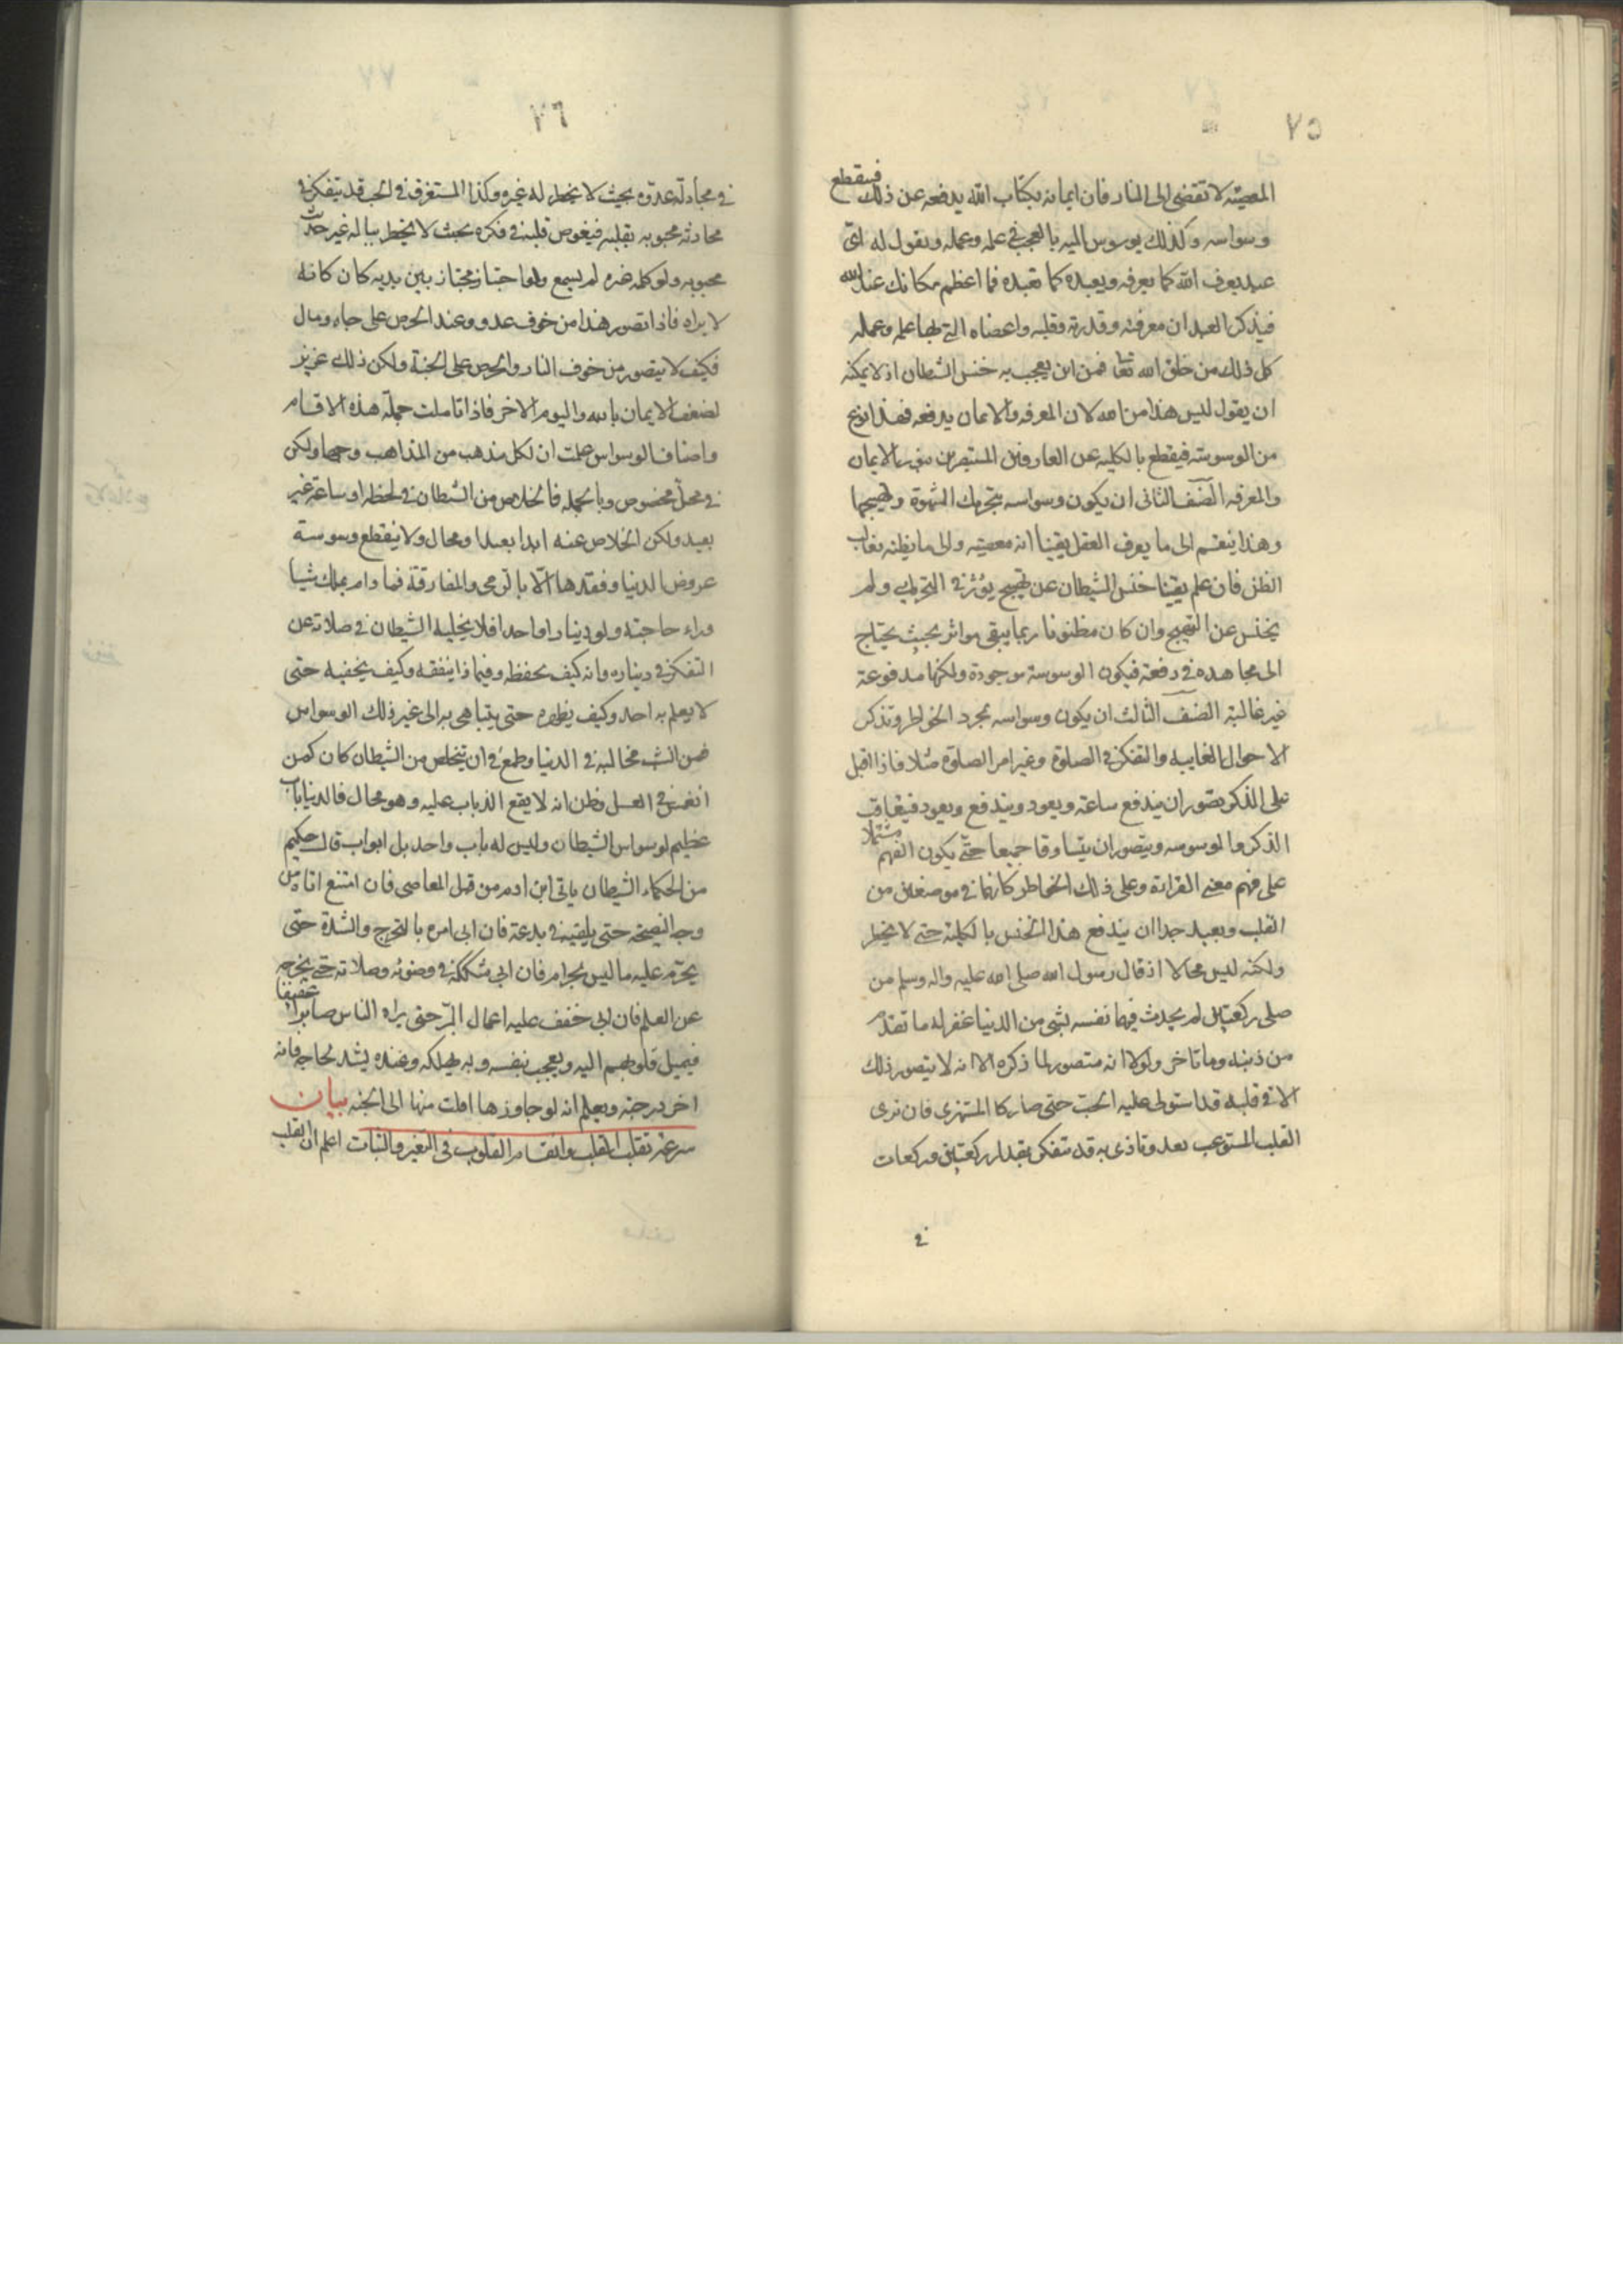 ٧٥
المعصية لا تقضى الى النار فان ايمانه بكتاب الله يدفعه عن ذلك فينقطع
وسواسه وكذلك يوسوس اليه بالعجب فى علمه وعمله ويقول له اى
عبد يعرف الله كما يعرفه ويعبده كما تعبده فما اعظم مكانك عند الله
فيذكر العبد ان معرفته وقدرته وقلبه واعضاه التى بها علمه وعمله
كل ذلك من خلق الله تعا فمن اين يعجب به خنس الشطان اذ لا يمكنه
ان يقول ليس هذا من الله لان المعرفه والايمان يدفعه فهذا نوع
من الوسوسة فيقطع بالكليه عن العارفين المستبصرين بنور الايمان
والمعرفه الصنف الثانى ان يكون وسواسه بتحريك الشهوة وتهييجها
وهذا ينقسم الى ما يعرف العقل يقينا انه معصيته والى ما يظنه بغالب
الظن فان علم يقينا خنس الشيطان عن تهييج يؤثر فى التحريك ولم
يخنس عن التهييج وان كان مظنونا ربما يبقى مواثر بحيث يحتاج
الى مجاهده فى دفعه فيكون الوسوسة موجودة ولكنها مدفوعة
غير غالبة الصنف الثالث ان يكون وسواسه بمجرد الخواطر وتذكر
الاحوال الغايبه والتفكر فى الصلوة وغير امر الصلوة مثلا فاذا اقبل
على الذكر يتصور ان يندفع ساعة ويعود ويندفع ويعود فيتعاقب
الذكر والوسوسه ويتصور ان يتساوقا جميعا حتّى يكون الفهم مشتملا
على فهم معنى القراءة وعلى ذلك الخواطر كانهما فى موضعين من
القلب وبعيد جدا ان يندفع هذا الخنس بالكلية حتى لا يخطر
ولكنه ليس محالا اذ قال رسول الله صلى الله عليه واله وسلم من
صلى ركعتين لم يحدث فيهما نفسه بشى من الدنيا غفر له ما تقدّم
من ذنبه وما تاخر ولولا انه متصور لما ذكره الا انه لا يتصور ذلك
الا فى قلبه قد استولى عليه الحب حتى صار كا المستهزى فان نرى
القلب المستوعب بعدو تاذى به قد تفكر بقدار ركعتين وركعات
فى
٧٦
فى مجادلة عدوّه بحيث لا يخطر له غيره وكذا المستغرق فى الحب قد يتفكر فى
محادثه محبوبه بقلبه فيغوص قلبه فى فكره بحيث لا يخطر بباله غير حديث
محبوبه ولو كلمه غيره لم يسمع ولو اجتاز مجتاز بين يديه كان كانه
لا يراه فاذا تصور هذا من خوف عدو وعند الحرص على جاه ومال
فكيف لا يتصور من خوف النار والحرص على الجنة ولكن ذلك عزيز
لضعف الايمان بالله واليوم الاخر فاذا تاملت جملة هذه الاقسام
واصناف الوسواس علمت ان لكل مذهب من المذاهب وجها ولكن
فى محلّ مخصوص وبالجمله فالخلاص من الشطان فى لحظه او ساعة غير
بعيد ولكن الخلاص عنه ابدا بعيدا ومحال ولا ينقطع وسوسة
عروض الدنيا وفقدها الّا بالرمى والمفارقة فما دام يملك شيأ
وراء حاجته ولو دينارا واحدا فلا يخليه الشيطان فى صلاته عن
التفكر فى ديناره وانه كيف يحفظه وفيما ذا ينفقه وكيف يخفيه حتى
لا يعلم به احد وكيف يظهره حتى يتباهى به الى غير ذلك الوسواس
فمن انشب مخالبه فى الدنيا وطمع فى ان يتخلص من الشيطان كان كمن
انغمس فى العسل وظن انه لا يقع الذباب عليه وهو محال فالدنيا باب
عظيم لوسواس الشيطان وليس له باب واحد بل ابواب قال حكيم
من الحكماء الشيطان ياتى ابن ادم من قبل المعاصى فان امتنع اتاه من
وجه النصيحة حتى يلقينه فى بدعة فان ابى امره بالتحرج والشدة حتى
يحرّم عليه ما ليس بحرام فان ابى شككه فى وضوئه وصلاته حتى يخرجه
عن العلم فان ابى خفف عليه اعمال البرّ حتى يراه الناس صابرا عفيفا
فيميل قلوبهم اليه ويعجب بنفسه وبه يهلكه وعنده يشد لحاجه فانه
اخر درجة ويعلم انه لو جاوزها افلت منها الى الجنه بيان
سرعة تقلب القلب وانقسام القلوب فى التغير والثبات اعلم ان القلب